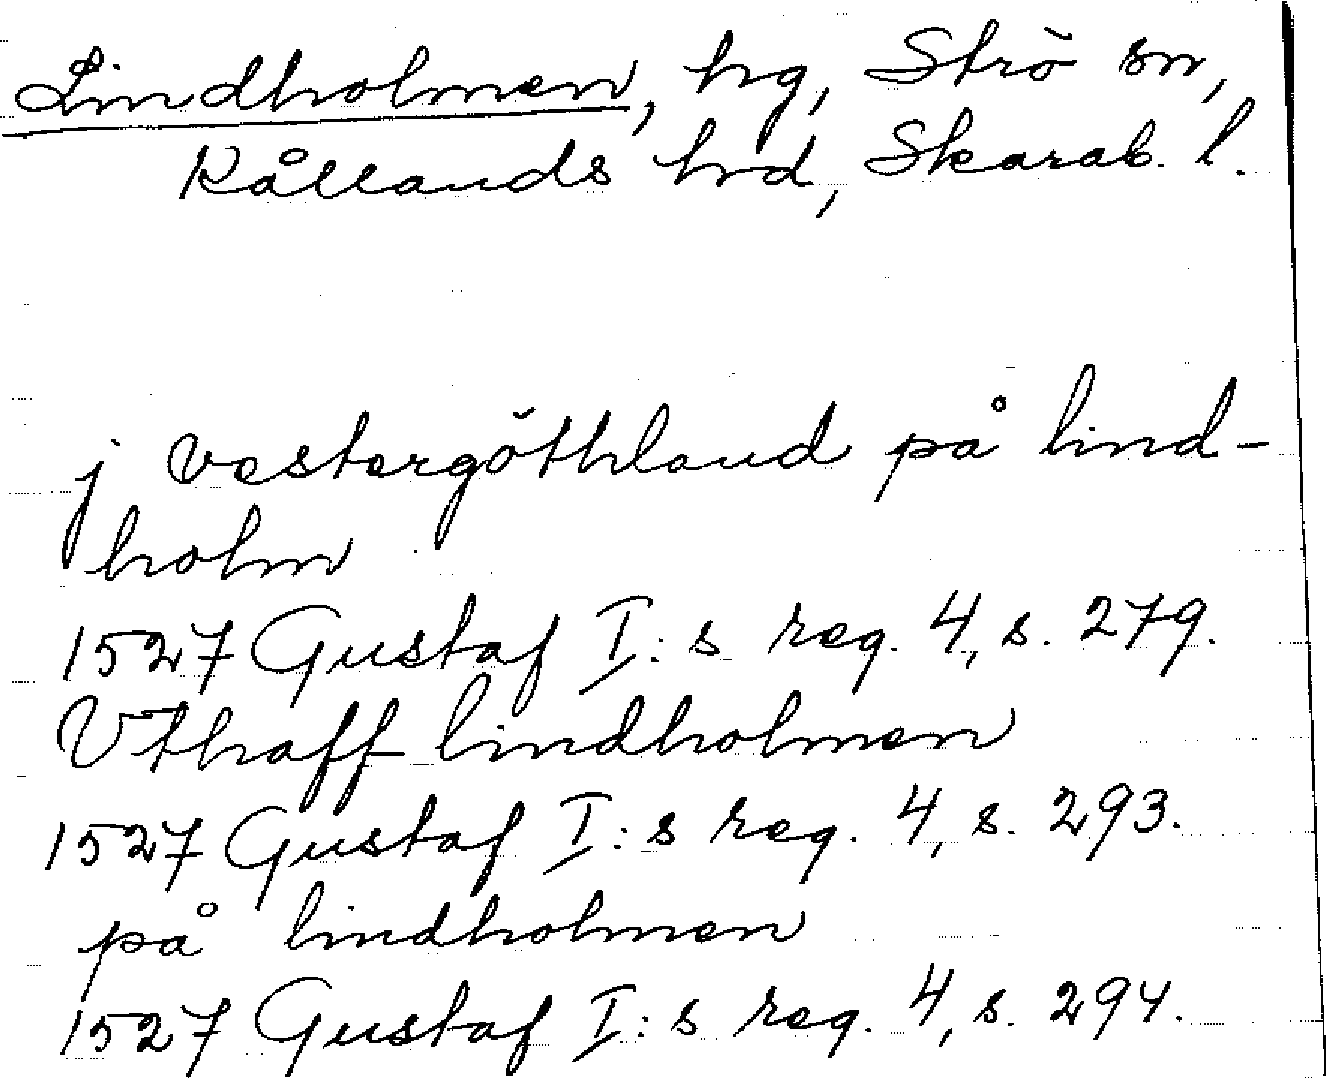 Lindholmen, hg, Strö sn,
Kållands hrd, Skarab. l.
j vestergöthland på lind-
holm
1527 Gustaf I:s reg. 4, s. 279.
Vthaff lindholmen
1527 Gustaf I:s reg. 4, s. 293.
på lindholmen
1527 Gustaf I:s reg. 4, s. 294.